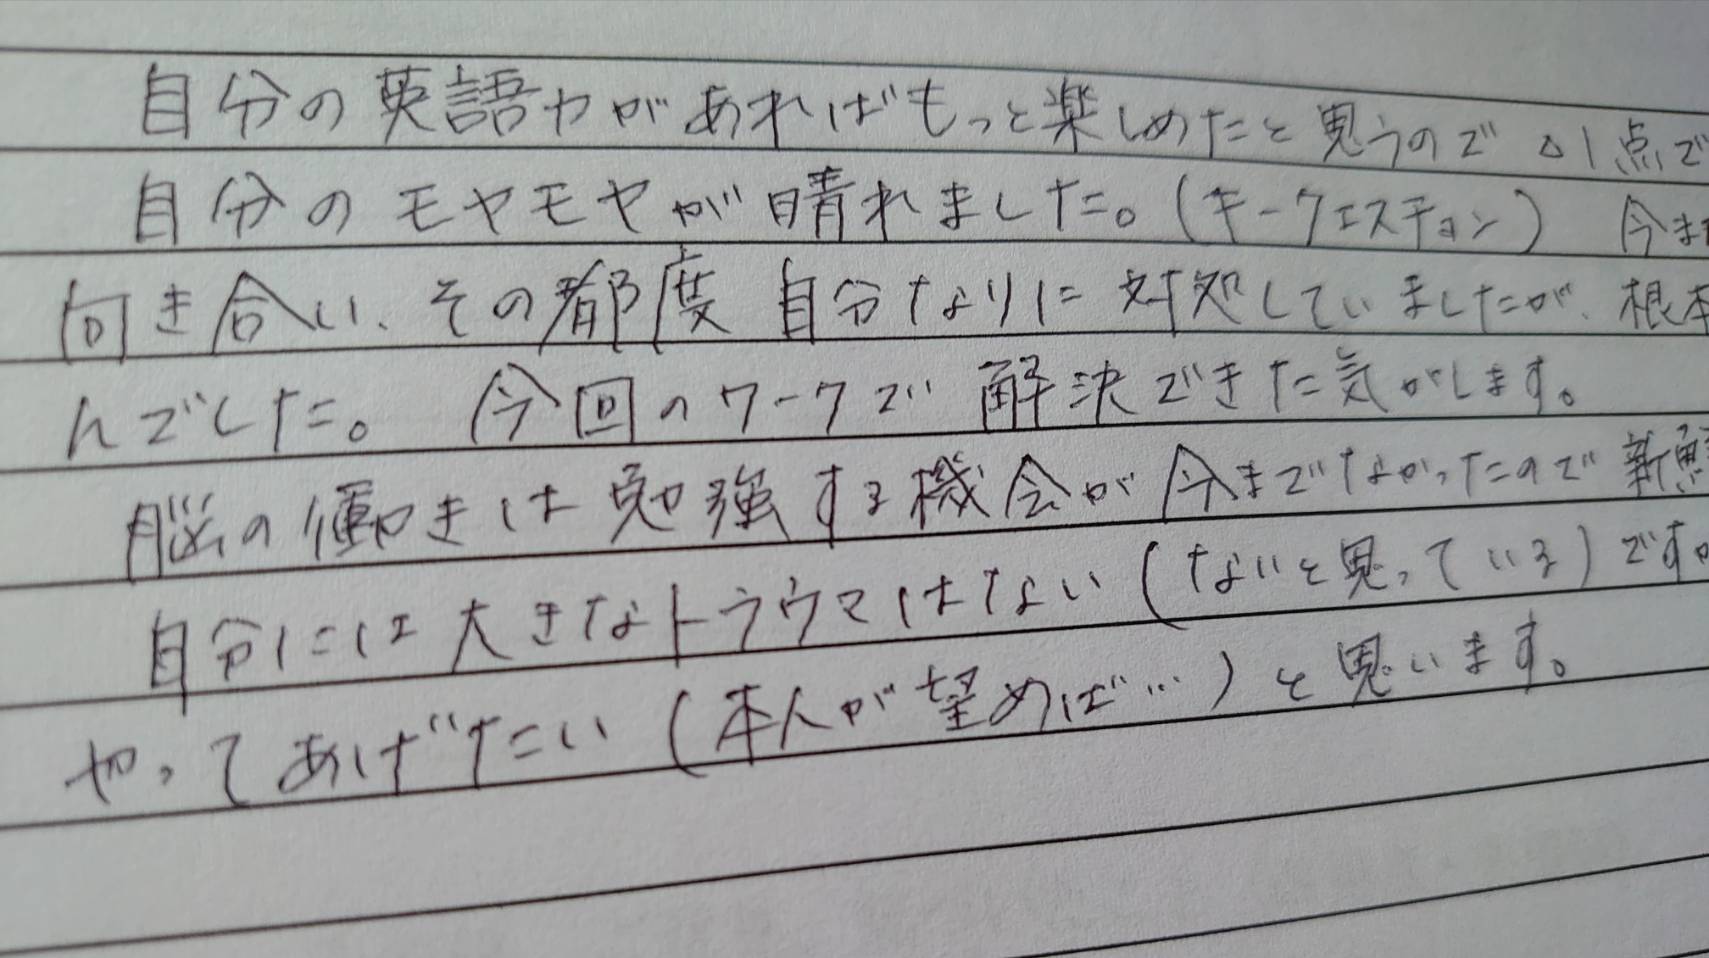 自分の英語力があればもっと楽しめたと思うので△1点で
自分のモヤモヤが晴れました。(キークエスチョン) 今ま
向き合い、その都度自分なりに対処していましたが、根本
んでした。 今回のワークで解決できた気がします。
脳の働きは勉強する機会が今までなかったので新鮮
自分には大きなトラウマはない(ないと思っている)です。
やってあげたい(本人が望めば…)と思います。